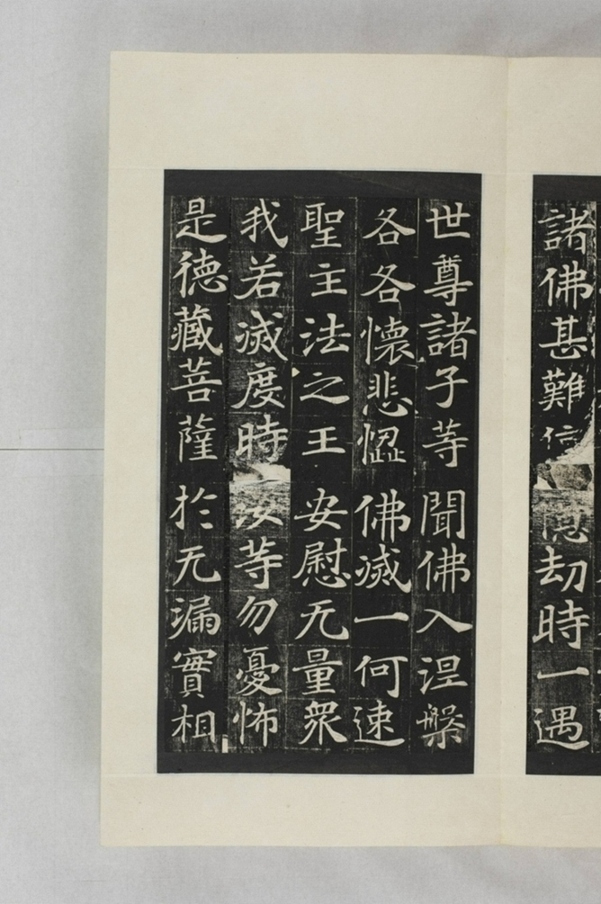 諸佛甚難 劫時一遇
世尊諸子等 聞佛入涅槃
各各懷悲惱 佛滅一何速
聖主法之王 安慰无量眾
我若滅度時 汝等勿憂怖
是德藏菩薩 於无漏實相